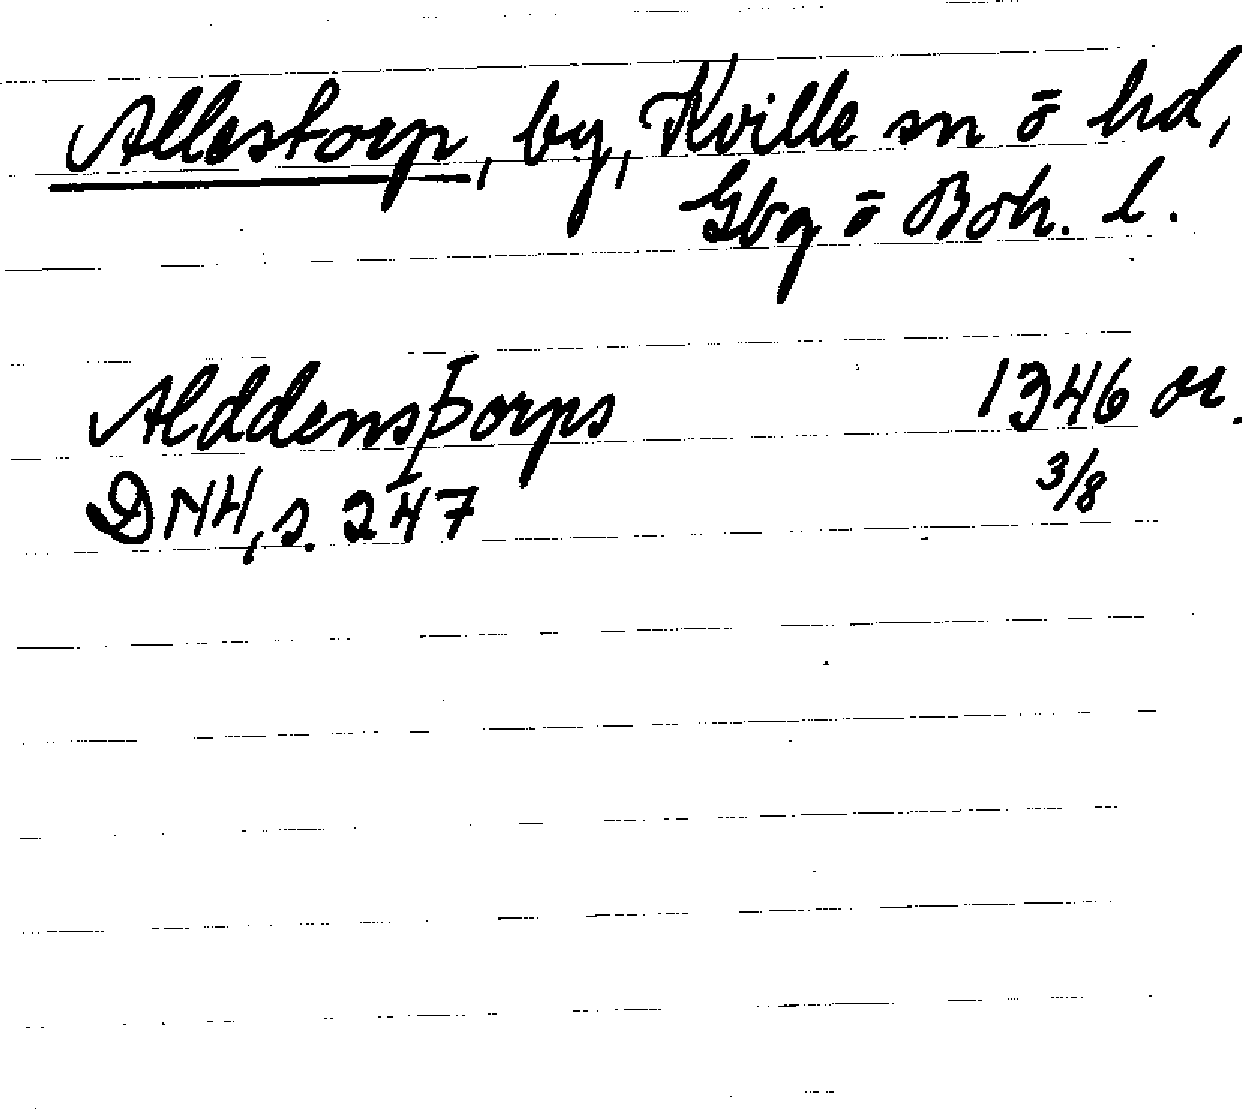 Allestorp, by, Kville sn ō hd,
Gbg ō Boh. l.
AlddensÞorps 1346 or.
DNH, s. 247 3/8